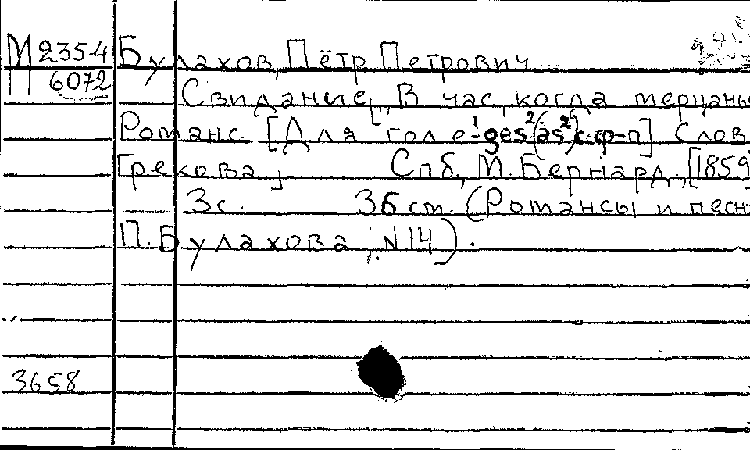 М 235-4 Булахов, Пётр Петрович
П 6072
Свидание, "В час, когда мерцань
Романс. [Для гол. e¹-ges²(as²) с ф-п] Слов
Грекова]. Спб, М. Бернард, [1859
3с. 36 см. (Романсы и песн
П. Булахова, N 14).
3658